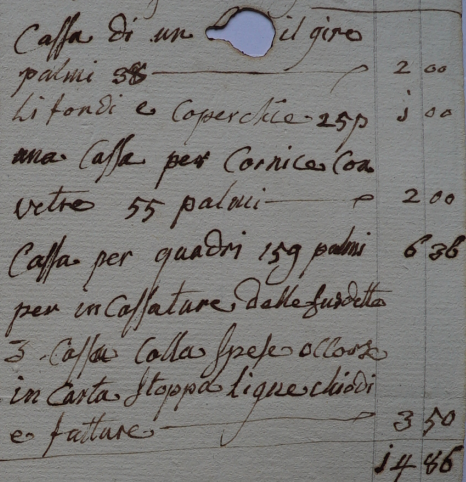 Cassa di un il giro
palmi 38 — 2 00
Li fondi e Coperchie 25 p 1 00
una Cassa per Cornice Con
vetro 55 palmi — 2 00
Cassa per quadri 159 palmi 6 36
per incassature delle sudette
3 Casse Colla spese occorse
in Carta stoppa ligne chiodi
e fatture — 3 50
14 86